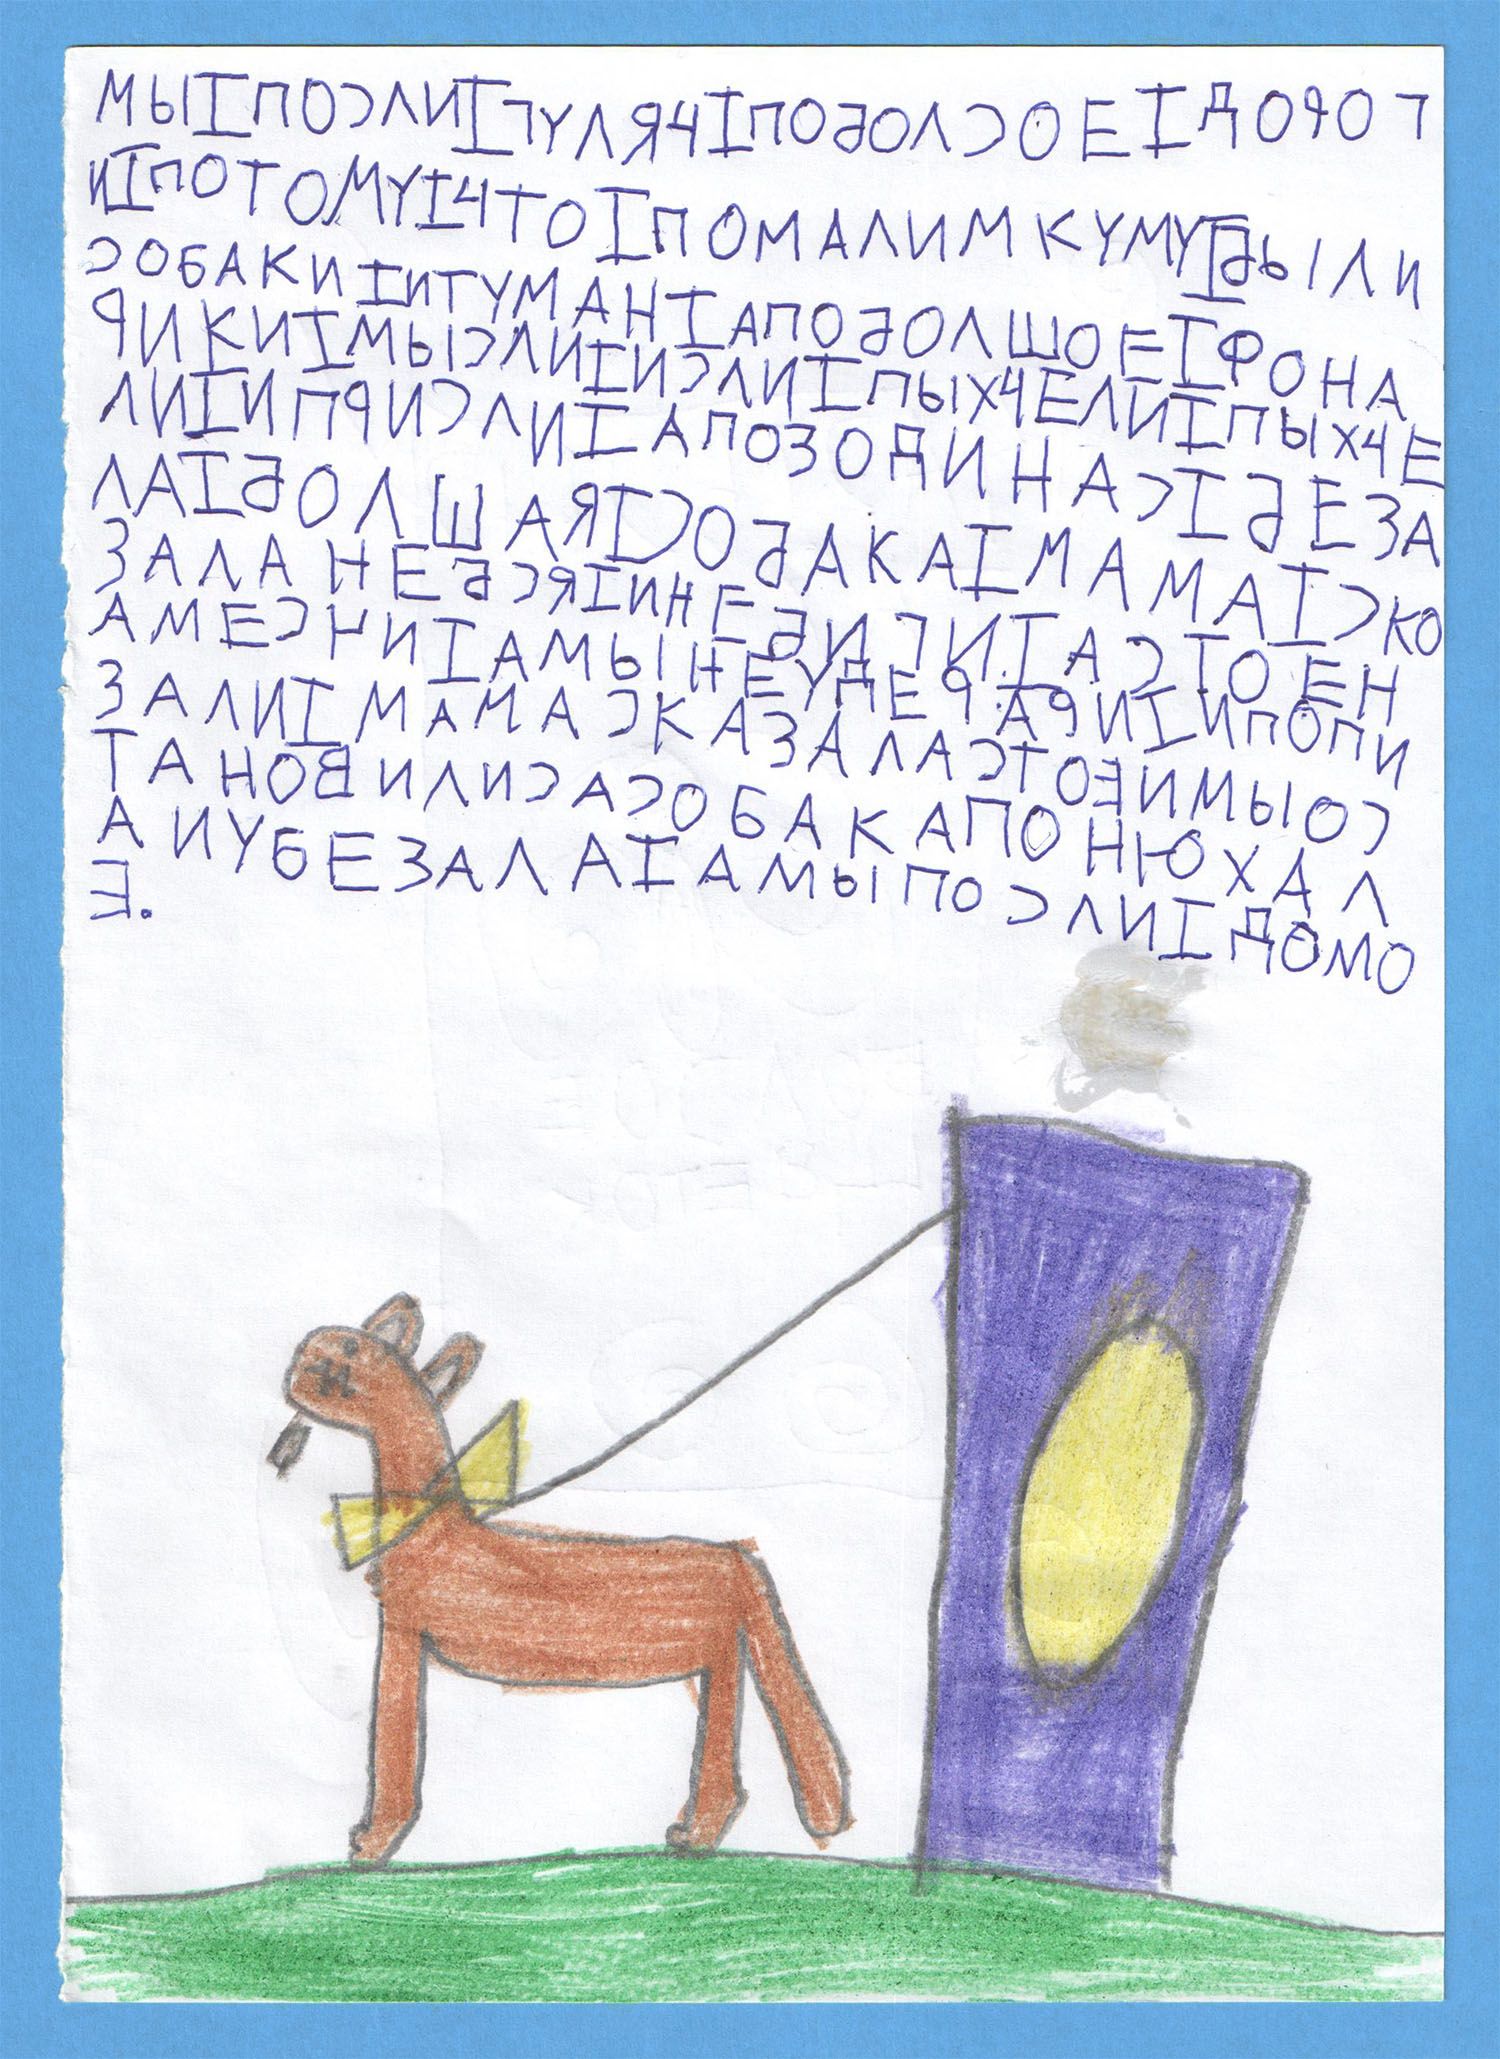 МЫ I ПОСЛИ I ГУЛЯЧ I ПО БОЛСОЕ I ДОРОГ
И I ПОТОМУ I ЧТО I ПО МАЛИМКУМУ I БЫЛИ
СОБАКИ I И ТУМАН I А ПО БОЛШОЕ I ФОНА
РИКИ I МЫ СЛИ I И СЛИ I ПЫХЧЕЛИ I ПЫХЧЕ
ЛИ I И ПРИСЛИ I А ПОЗОДИ НАС I БЕЗА
ЛА I БОЛШАЯ I СОБАКА I МАМА I СКО
ЗАЛА НЕ БСЯ I И НЕ БИСИ I А СТО ЕН
А МЕСНИ I А МЫ НЕ УДЕРАРИ I И ПОПИ
ЗАЛИ I МАМА СКАЗАЛА СТОЭ И МЫ ОС
ТАНОВИЛИС А СОБАКА ПОНЮХАЛ
А И УБЕЗАЛА I А МЫ ПОСЛИ I ДОМО
Э.